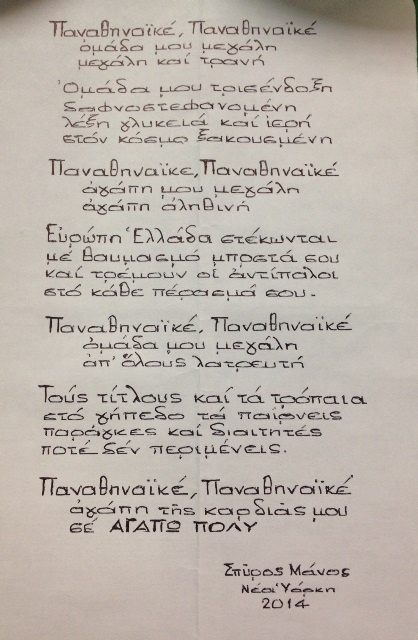 Παναθηναϊκέ, Παναθηναϊκέ
ὁμάδα μου μεγάλη
μεγάλη καί τρανή
Ὁμάδα μου τρισένδοξη
δαφνοστεφανομένη
λέξη γλυκειά καί ἱερή
στόν κόσμο ξακουσμένη
Παναθηναϊκέ, Παναθηναϊκέ
ἀγάπη μου μεγάλη
ἀγάπη ἀληθινή
Εὐρώπη Ἑλλάδα στέκωνται
μέ θαυμασμό μπροστά σου
καί τρέμουν οἱ ἀντίπαλοι
στό κάθε πέρασμά σου.
Παναθηναϊκέ, Παναθηναϊκέ
ὁμάδα μου μεγάλη
ἀπ' ὅλους λατρευτή
Τούς τίτλους καί τά τρόπαια
στό γήπεδο τά παίρνεις
παράγκες καί διαιτητές
ποτέ δέν περιμένεις.
Παναθηναϊκέ, Παναθηναϊκέ
ἀγάπη τῆς καρδιᾶς μου
σέ ΑΓΑΠΩ ΠΟΛΥ
Σπῦρος Μάνος
Νέα Ὑόρκη
2014